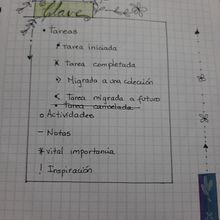 Clave
• Tareas
• Tarea iniciada
x Tarea completada
> Migrada a una colección
< Tarea migrada a futuro
• Tarea cancelada
o Actividades
- Notas
* Vital importancia
! Inspiración